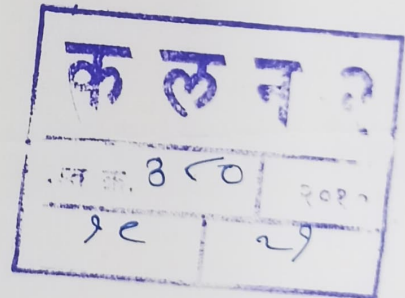 क ल न २
द्स्त क्र. ३८० २०१०
१९ २१